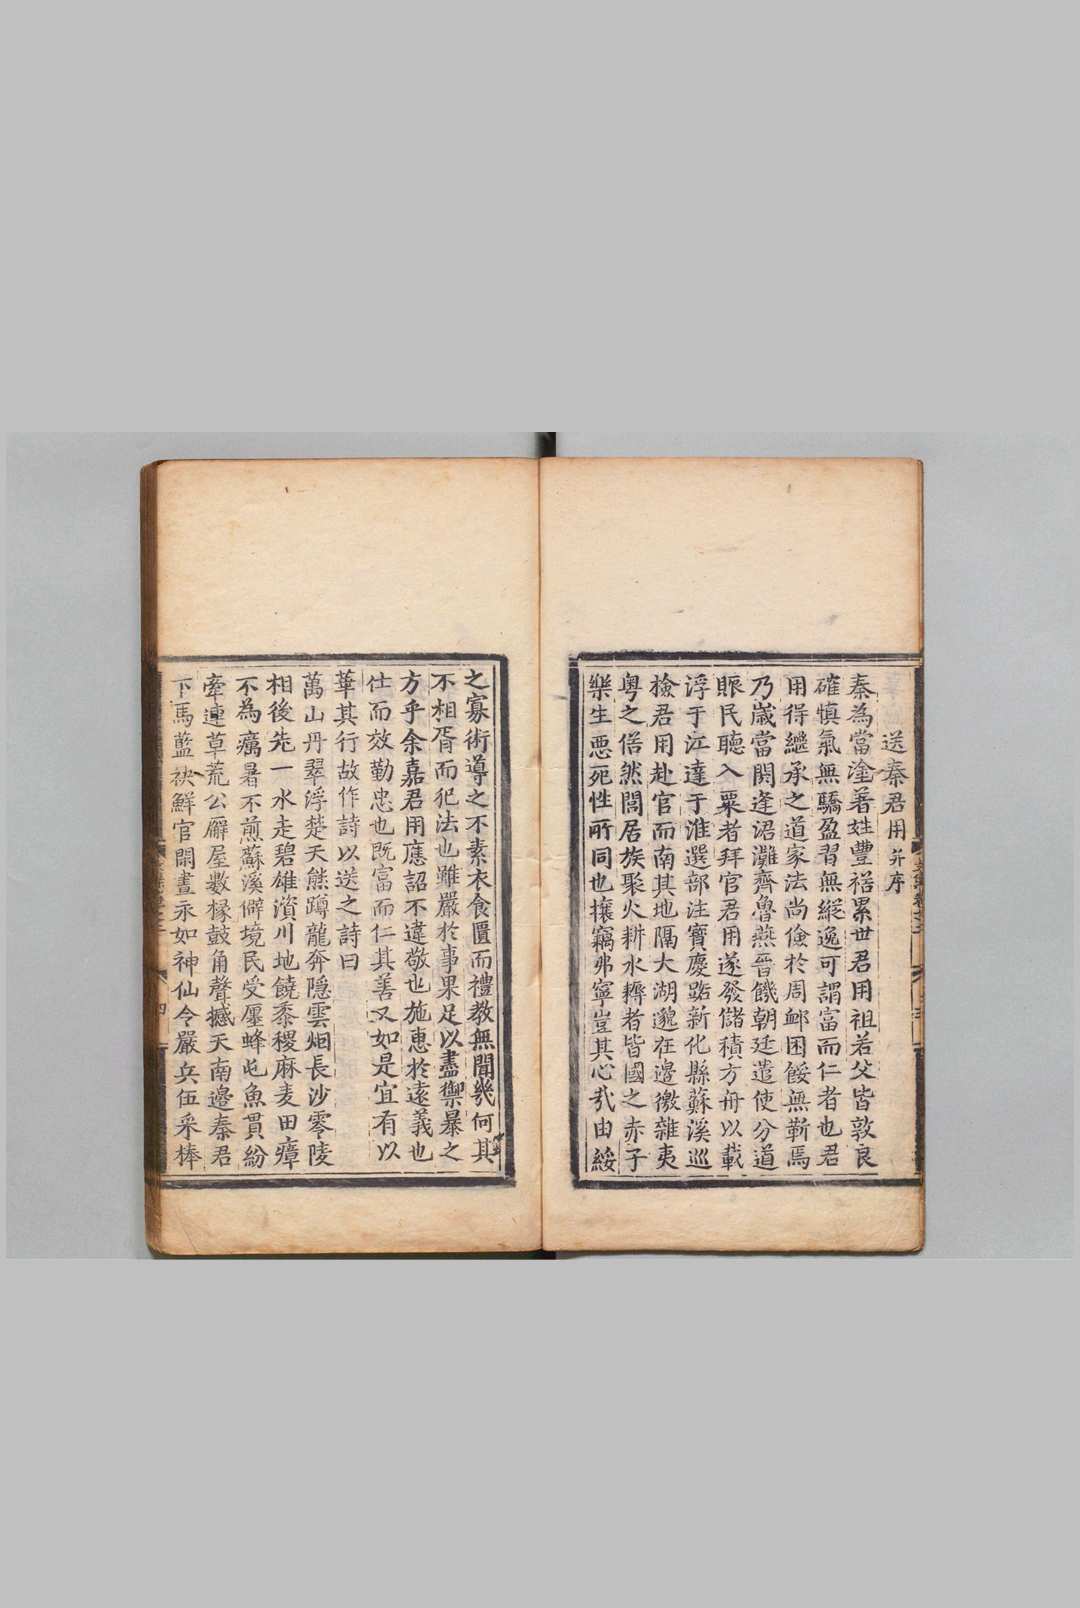 送秦君用并序
秦為當塗著姓豐禧累世君用祖若父皆敦良
確慎氣無驕盈習無縱逸可謂富而仁者也君
用得繼承之道家法尚儉於周䘏困餒無靳焉
乃嵗當閼逢涒灘齊魯燕晉饑朝廷遣使分道
賑民聽入粟者拜官君用遂發儲積方舟以載
浮于江達于淮選部注寳慶路新化縣蘇溪巡
檢君用赴官而南其地隔大湖邈在邊徼雜夷
粤之俗然閭居族聚火耕水耨者皆國之赤子
樂生惡死性所同也攘竊弗寧豈其心㢤由綏
之寡術導之不素衣食匱而禮教無聞幾何其
不相胥而犯法也雖嚴於事果足以盡禦暴之
方乎余嘉君用應詔不違敬也施惠於遠義也
仕而效勤忠也既富而仁其善又如是宜有以
華其行故作詩以送之詩曰
萬山丹翠浮楚天熊蹲龍奔隱雲烟長沙零陵
相後先一水走碧雄濱川地饒黍稷麻麦田瘴
不為癘暑不煎蘇溪僻境民受廛蜂屯魚貫紛
牽連草荒公廨屋數椽鼓角聲撼天南邊秦君
下馬藍袂鮮官閒晝永如神仙令嚴兵伍采棒